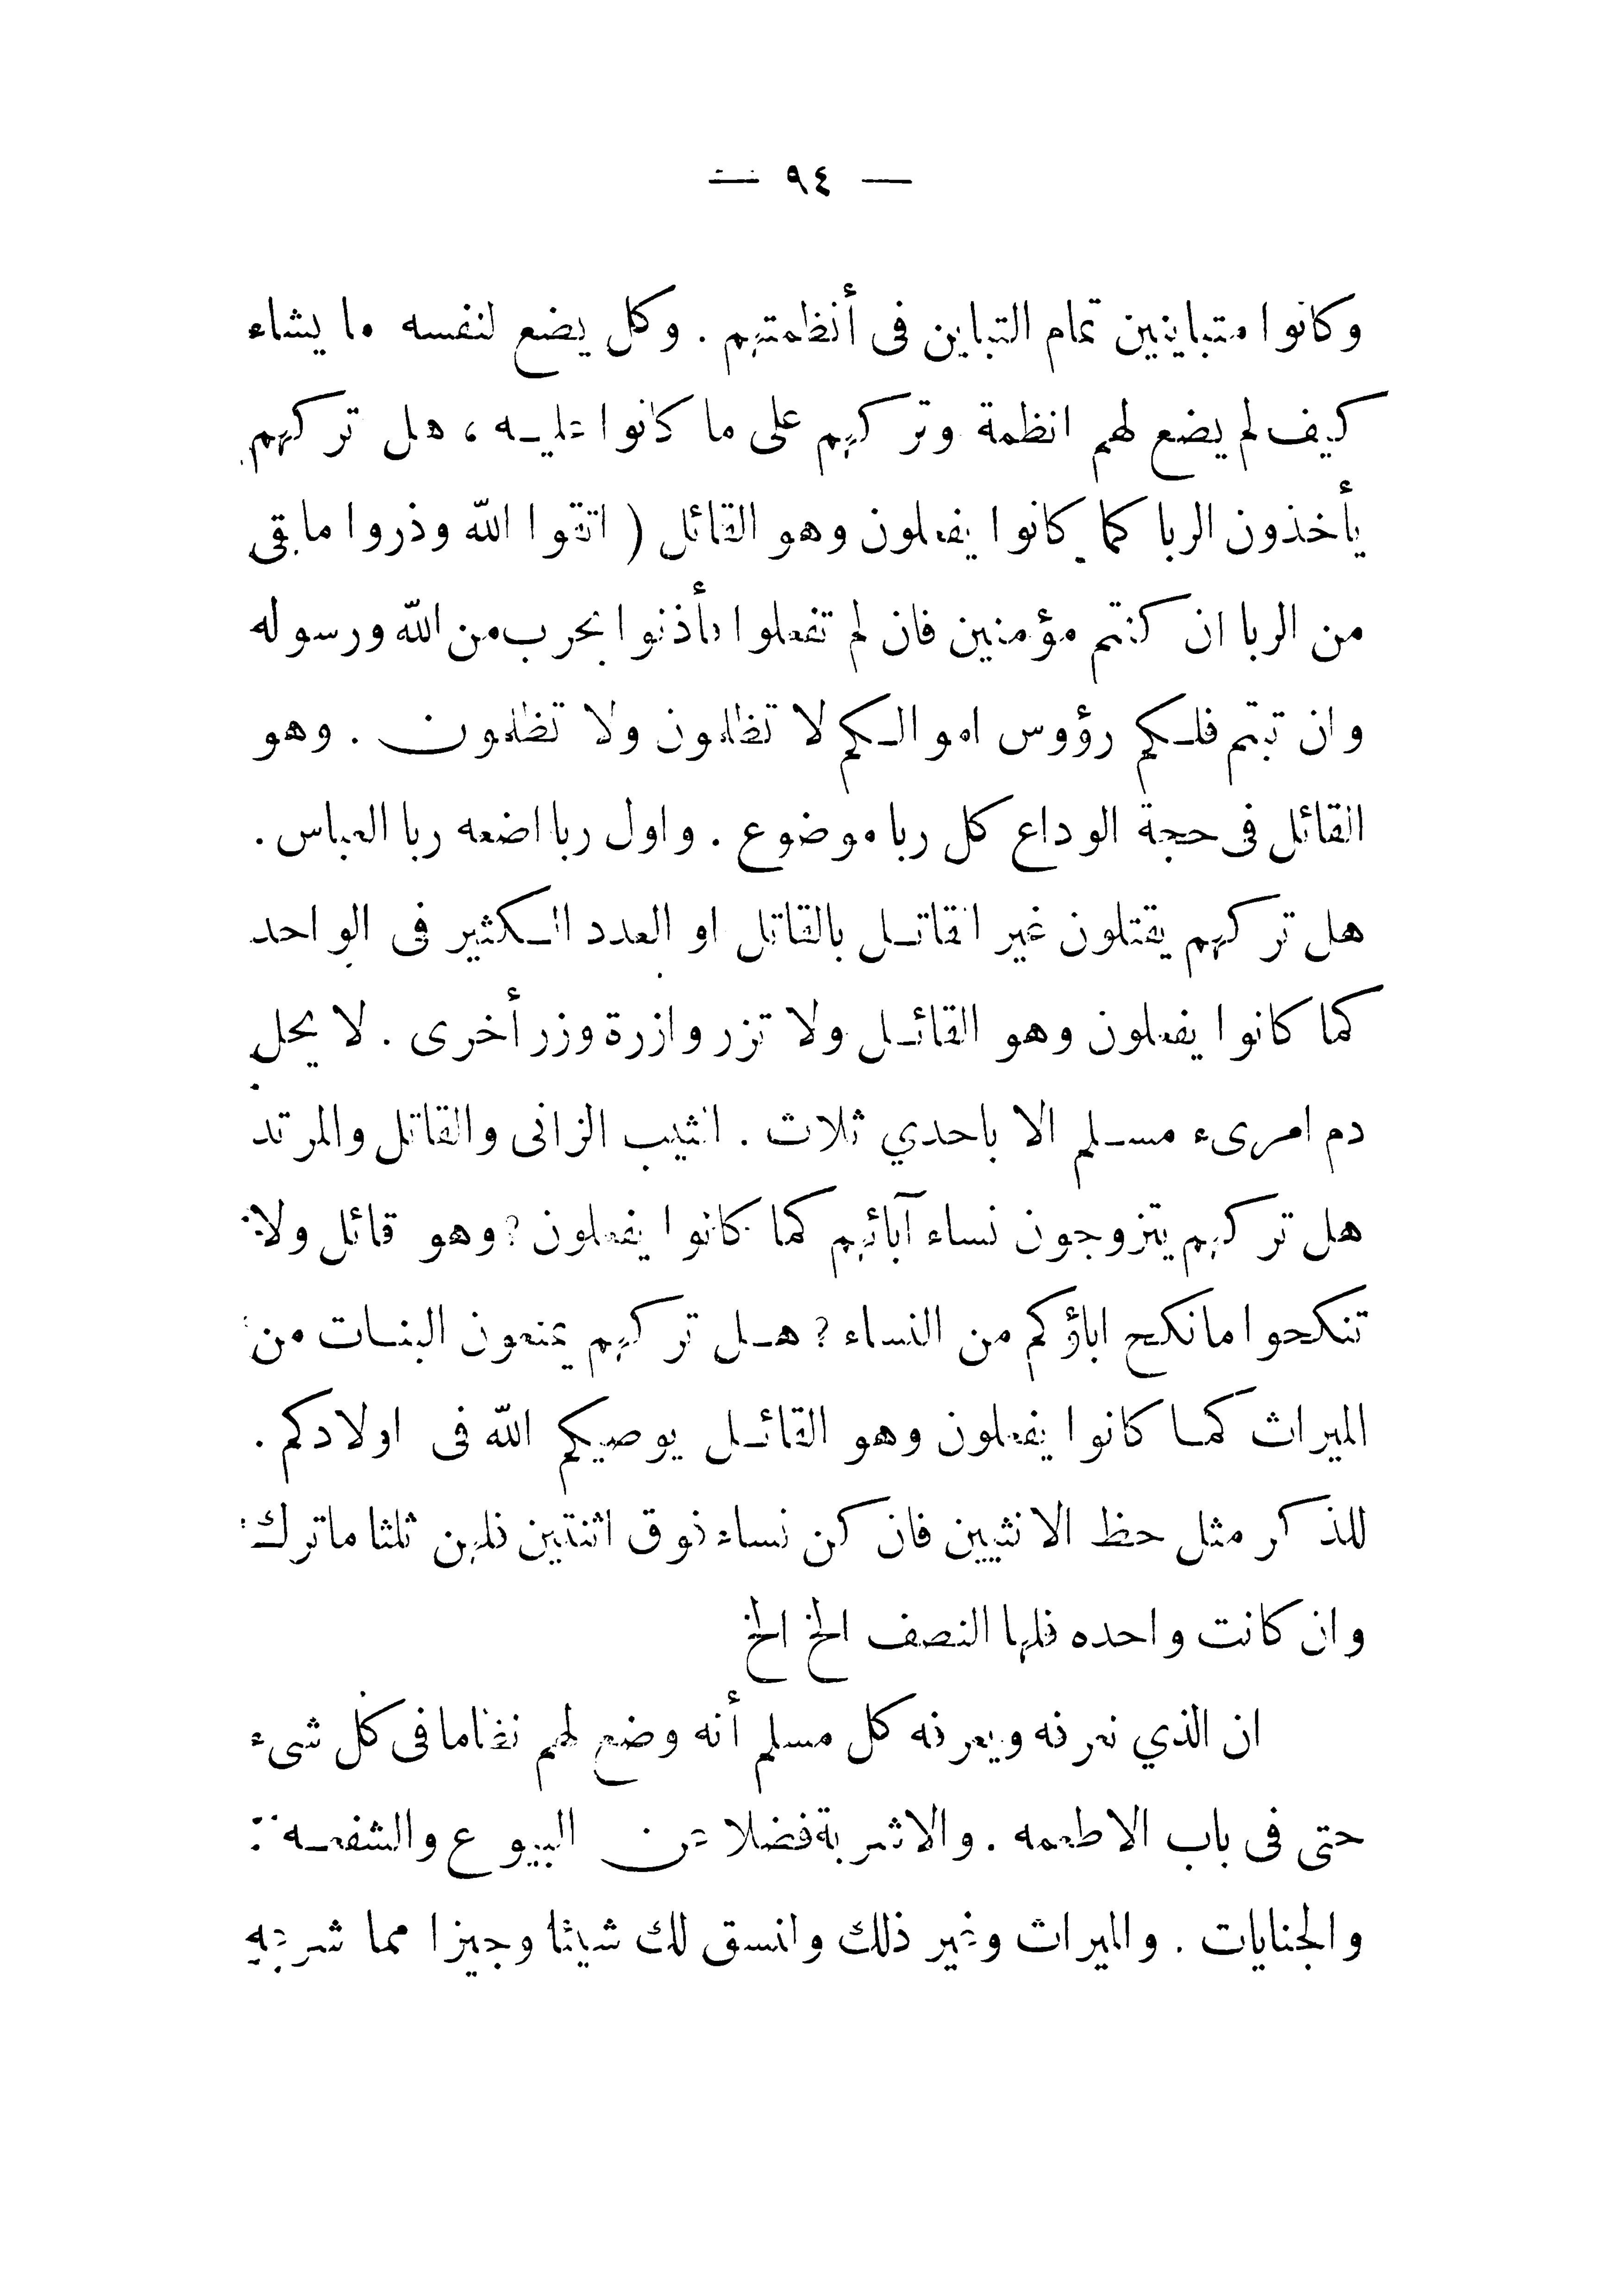 — ٩٤ —
وكانوا متباينين تمام التباين فى أنظمتهم . وكل يضع لنفسه ما يشاء
كيف لم يضع لهم انظمة وتركهم على ما كانوا عليه ، هل تركهم
يأخذون الربا كما كانوا يفعلون وهو القائل ( اتقوا الله وذروا ما بقى
من الربا ان كنتم مؤمنين فان لم تفعلوا فأذنوا بحرب من الله ورسوله
وان تبتم فلكم رؤوس اموالكم لا تظلمون ولا تظلمون . وهو
القائل فى حجة الوداع كل ربا موضوع . واول ربا اضعه ربا العباس .
هل تركهم يقتلون غير القاتل بالقاتل او العدد الكثير فى الواحد
كما كانوا يفعلون وهو القائل ولا تزر وازرة وزر أخرى . لا يحل
دم امرىء مسلم الا باحدي ثلاث . الثيب الزانى والقاتل والمرتد
هل تركهم يتزوجون نساء آبائهم كما كانوا يفعلون ? وهو قائل ولا
تنكحوا مانكح اباؤكم من النساء ? هل تركهم يمنعون البنات من
الميراث كما كانوا يفعلون وهو القائل يوصيكم الله فى اولادكم .
للذكر مثل حظ الانثيين فان كن نساء فوق اثنتين فلهن ثلثا ماترك
وان كانت واحده فلها النصف الخ الخ
ان الذي نعرفه ويعرفه كل مسلم أنه وضع لهم نظاما فى كل شىء
حتى فى باب الاطعمه . والاشربة فضلا عن البيوع والشفعه .
والجنايات . والميراث وغير ذلك وانسق لك شيئا وجيزا مما شرعه